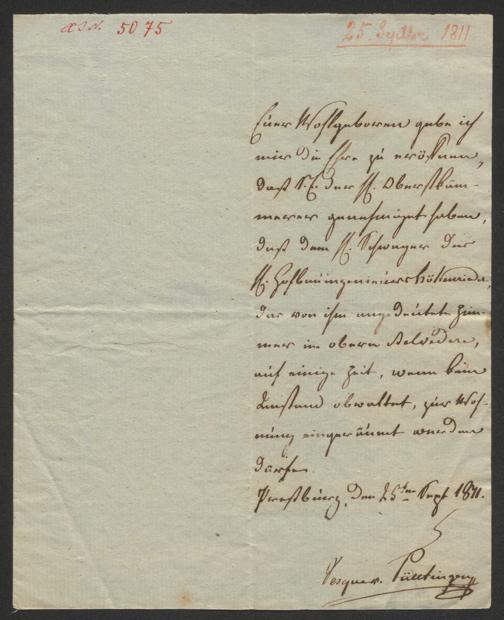 5075
25. Septbr 1811
Euer Wohlgeboren gebe ich
mir die Ehre zu eröffnen,
daß S.E. der H. Oberstkäm-
merer genehmiget haben,
daß dem H. Schwager des
H. Hofbauingenieurs
das von ihm angedeutete Zim-
mer im obern Belvedere,
auf einige Zeit, wenn kein
Anstand obwaltet, zur Woh-
nung eingeräumt werden
dürfe.
Presburg, den 25ten Sept 1811.
Vesque v. Püttlingen